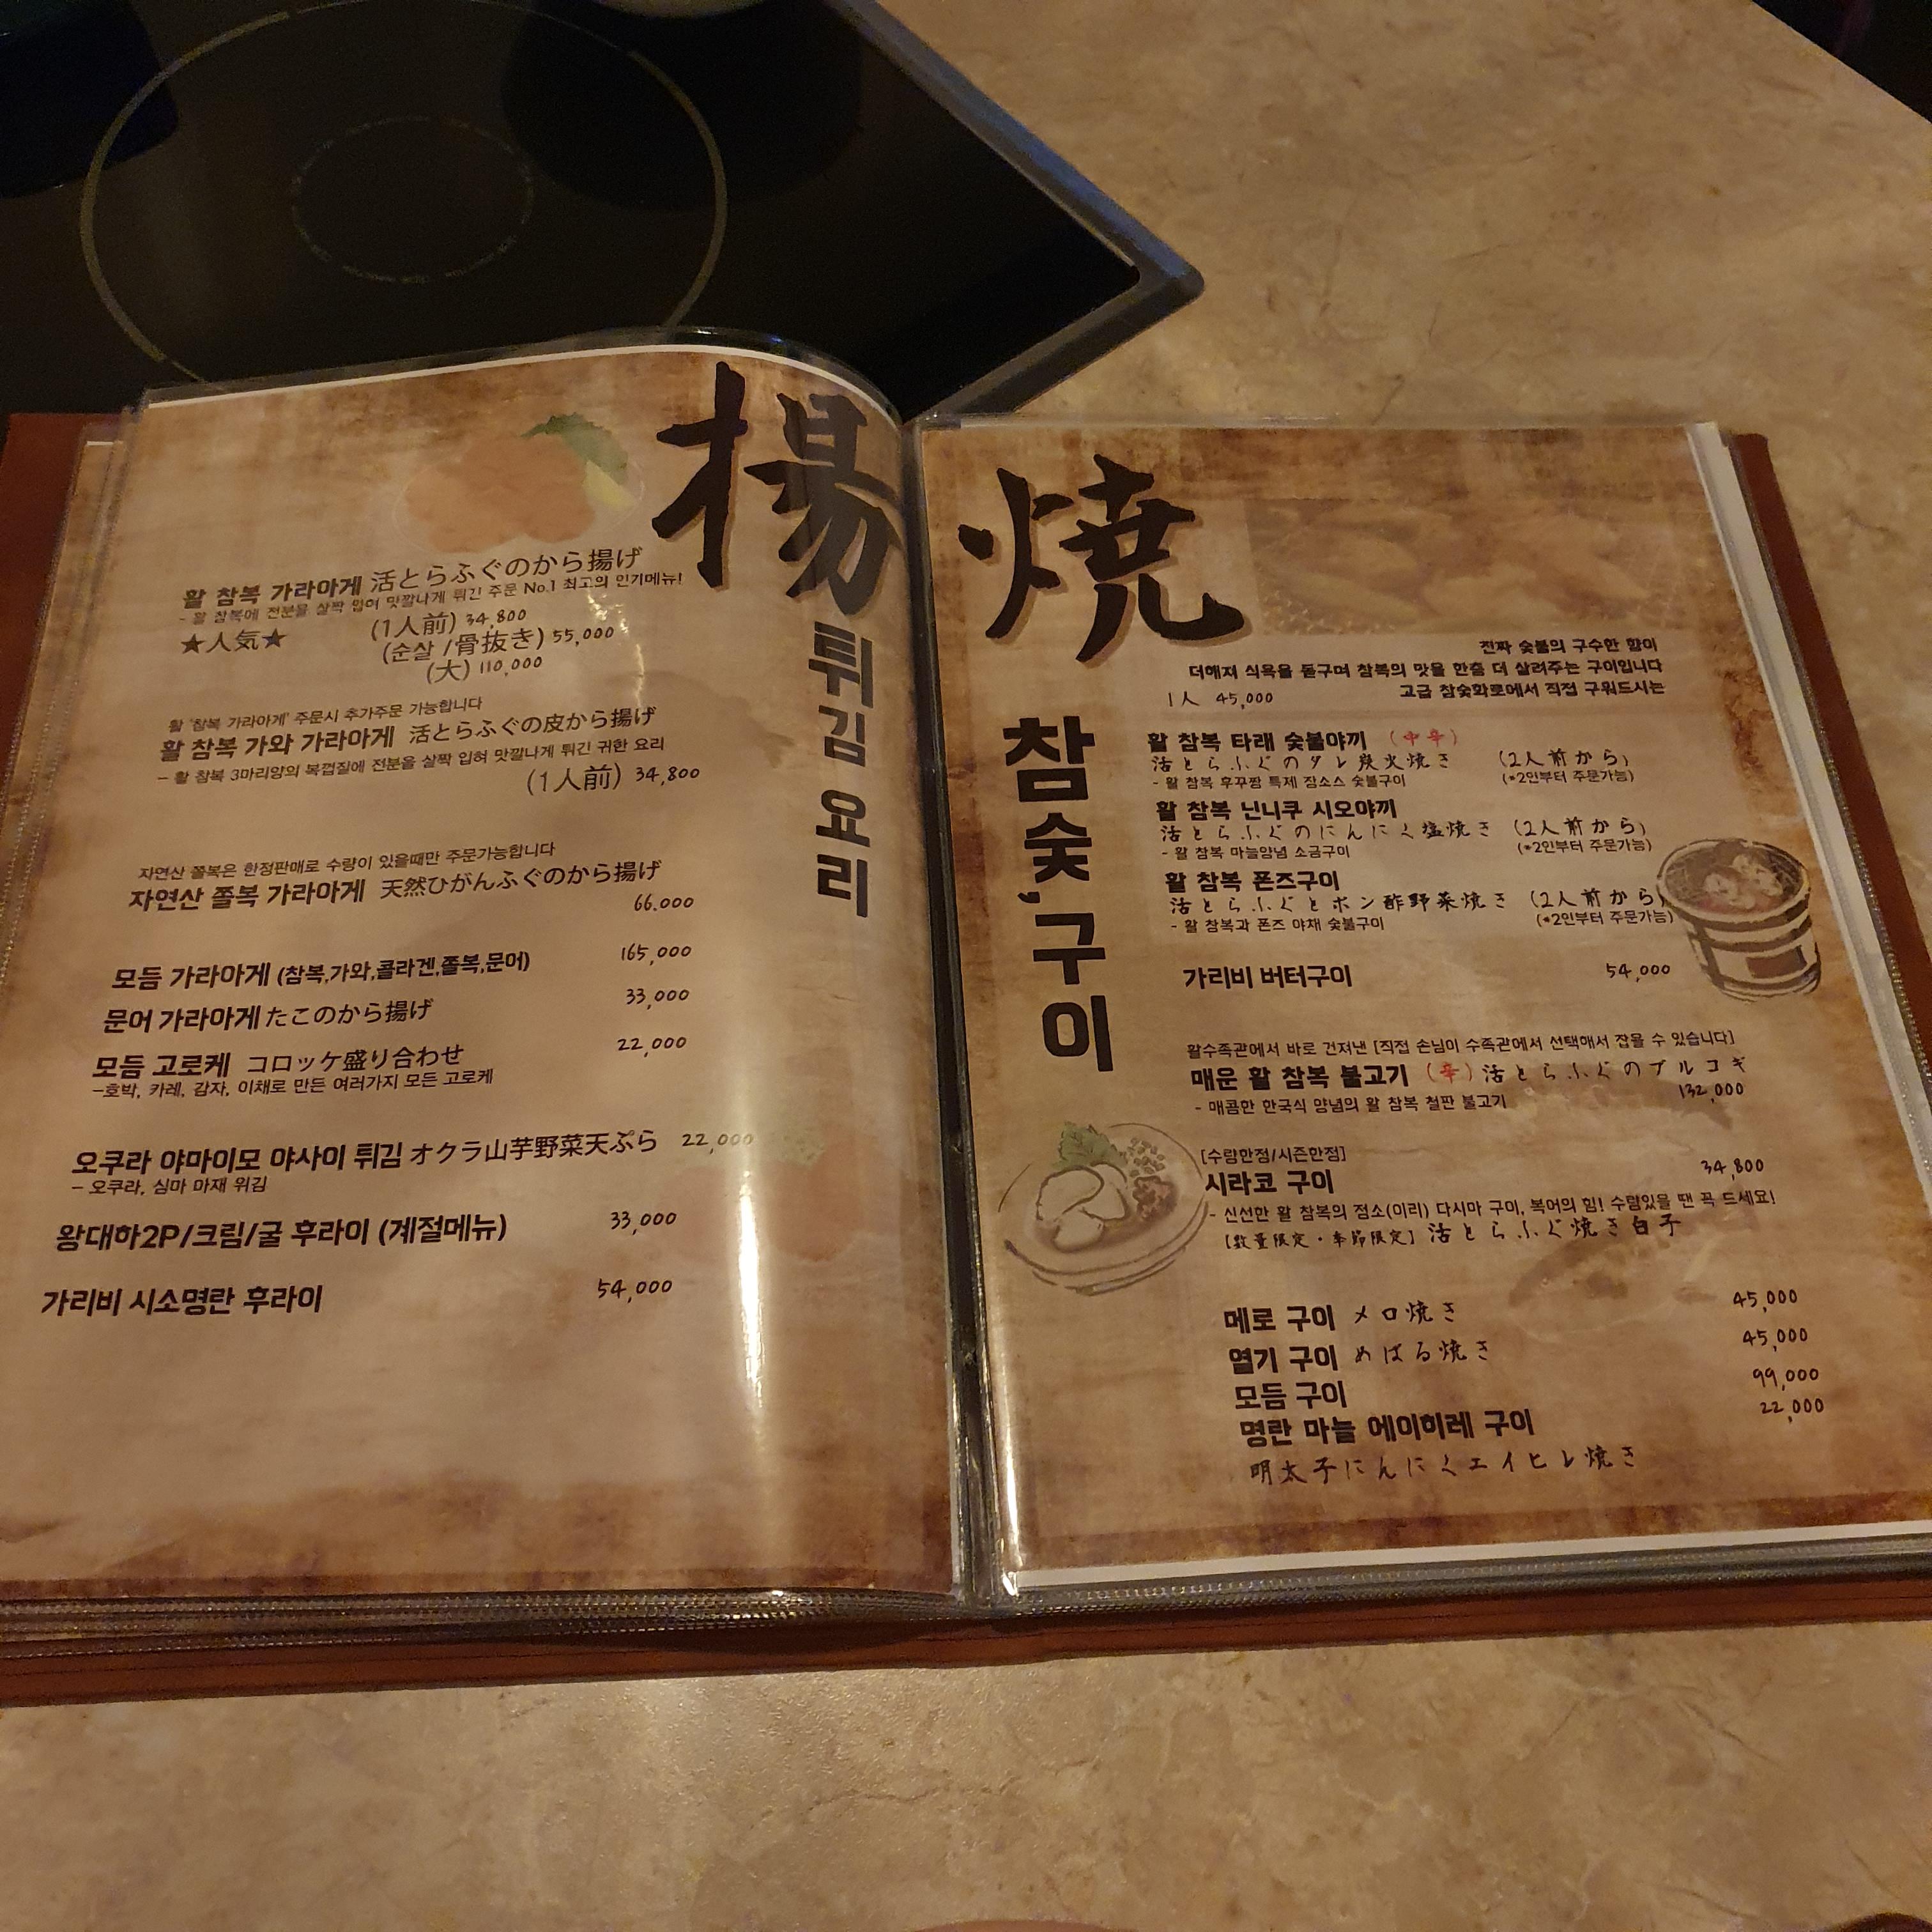 揚
튀김 요리
활 참복 가라아게 活とらふぐのから揚げ
- 활 참복에 전분을 살짝 입혀 맛깔나게 튀긴 주문 No.1 최고의 인기메뉴!
★人気★ (1人前) 34,800
(순살 /骨抜き) 55,000
(大) 110,000
활 '참복 가라아게' 주문시 추가주문 가능합니다
활 참복 가와 가라아게 活とらふぐの皮から揚げ
- 활 참복 3마리양의 복껍질에 전분을 살짝 입혀 맛깔나게 튀긴 귀한 요리
(1人前) 34,800
자연산 쫄복은 한정판매로 수량이 있을때만 주문가능합니다
자연산 쫄복 가라아게 天然ひがんふぐのから揚げ
66.000
모듬 가라아게 (참복,가와,콜라겐,쫄복,문어) 165,000
문어 가라아게 たこのから揚げ 33,000
모듬 고로케 コロッケ盛り合わせ 22,000
-호박, 카레, 감자, 야채로 만든 여러가지 모든 고로케
오쿠라 야마이모 야사이 튀김 オクラ山芋野菜天ぷら 22,000
- 오쿠라, 심마 마재 위김
왕대하2P/크림/굴 후라이 (계절메뉴) 33,000
가리비 시소명란 후라이 54,000
焼
참숯,구이
진짜 숯불의 구수한 향이
더해져 식욕을 돋구며 참복의 맛을 한층 더 살려주는 구이입니다
1人 45,000 고급 참숯화로에서 직접 구워드시는
활 참복 타래 숯불야끼 (中辛)
活とらふぐのタレ炭火焼き (2人前から)
- 활 참복 후꾸짱 특제 장소스 숯불구이 (*2인부터 주문가능)
활 참복 닌니쿠 시오야끼
活とらふぐのにんにく塩焼き (2人前から)
- 활 참복 마늘양념 소금구이 (*2인부터 주문가능)
활 참복 폰즈구이
活とらふぐとポン酢野菜焼き (2人前から)
- 활 참복과 폰즈 야채 숯불구이 (*2인부터 주문가능)
가리비 버터구이 54,000
활수족관에서 바로 건져낸 [직접 손님이 수족관에서 선택해서 잡을 수 있습니다]
매운 활 참복 불고기 (辛) 活とらふぐのプルコギ
- 매콤한 한국식 양념의 활 참복 철판 불고기 132,000
[수량한정/시즌한정]
시라코 구이 34,800
- 신선한 활 참복의 정소(이리) 다시마 구이, 복어의 힘! 수량있을 땐 꼭 드세요!
[数量限定・季節限定] 活とらふぐ焼き白子
메로 구이 メロ焼き 45,000
열기 구이 めばる焼き 45,000
모듬 구이 99,000
명란 마늘 에이히레 구이 22,000
明太子にんにくエイヒレ焼き